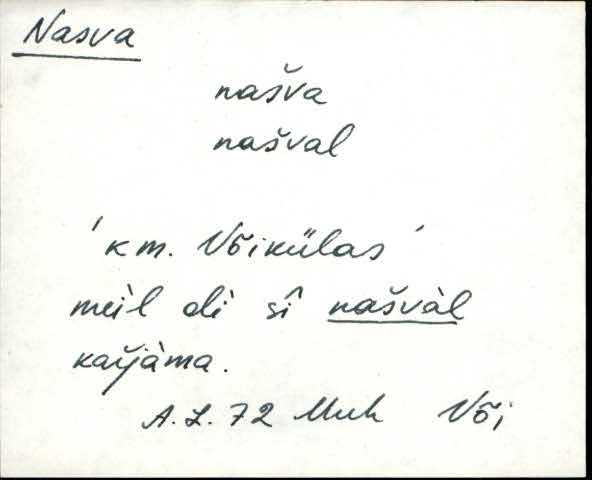 Nasva
našva
našval
'km. Võikülas'
meìl oli sî našvàl
kaŕjàma.
A.L. 72 Muh Või